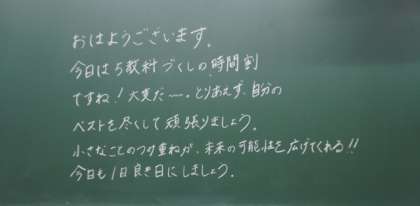 おはようございます。
今日は5教科づくしの時間割
ですね！大変だー。とりあえず、自分の
ベストを尽くして頑張りましょう。
小さなことのつみ重ねが、未来の可能性を広げてくれる!!
今日も1日良き日にしましょう。